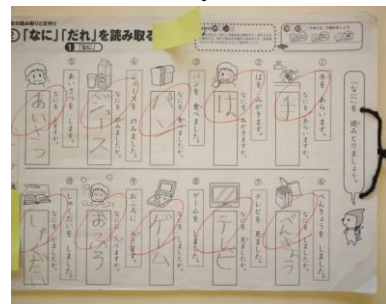 「なに」「だれ」を読み取る
① 「なに」
「なに」を 読みとりましょう。
① 手を あらいます。
なにを あらいますか。
手
② はを みがきます。
なにを みがきますか。
は
③ パンを 食べました。
なにを 食べましたか。
パン
④ ジュースを のみました。
なにを のみましたか。
ジュース
⑤ あいさつを します。
なにを しますか。
あいさつ
⑥ べんきょうを しました。
なにを しましたか。
べんきょう
⑦ テレビを 見ました。
なにを 見ましたか。
テレビ
⑧ ゲームを しました。
なにを しましたか。
ゲーム
⑨ おふろに 入ります。
なにに 入りますか。
おふろ
⑩ しゅくだいを しました。
なにを しましたか。